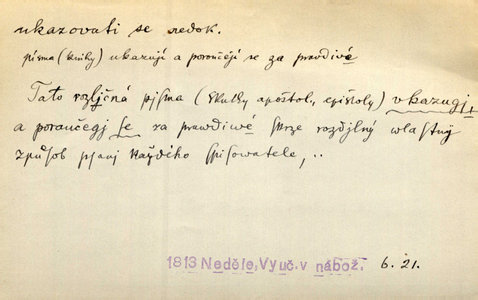 ukazovati se nedok.
písma (knihy) ukazují a poroučejí se za pravdivé
Tato rozljčná pjsma (skutky apoštol., epištoly) vkazugj,
a poraučegj se za prawdiwé skrze rozdjlný wlastný
způsob psanj každého spisowatele, ..
1813 Neděle, Vyuč. v nábož. 6. 21.